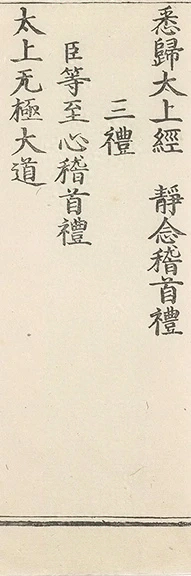 悉歸太上經　靜念稽首禮
三禮
臣等至心稽首禮
太上无極大道